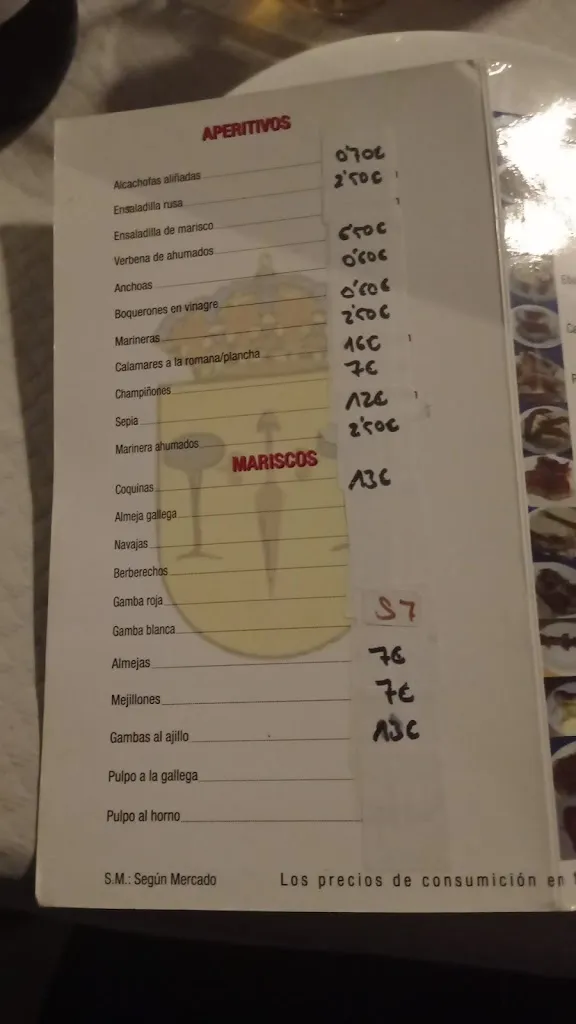 APERITIVOS
Alcachofas aliñadas 0'70€
Ensaladilla rusa 2'50€
Ensaladilla de marisco
Verbena de ahumados 6'50€
Anchoas 0'60€
Boquerones en vinagre 0'60€
Marineras 2'50€
Calamares a la romana/plancha 16€
Champiñones 7€
Sepia 12€
Marinera ahumados 2'50€
MARISCOS
Coquinas 13€
Almeja gallega
Navajas
Berberechos
Gamba roja S7
Gamba blanca
Almejas 7€
Mejillones 7€
Gambas al ajillo 13€
Pulpo a la gallega
Pulpo al horno
S.M.: Según Mercado Los precios de consumición en